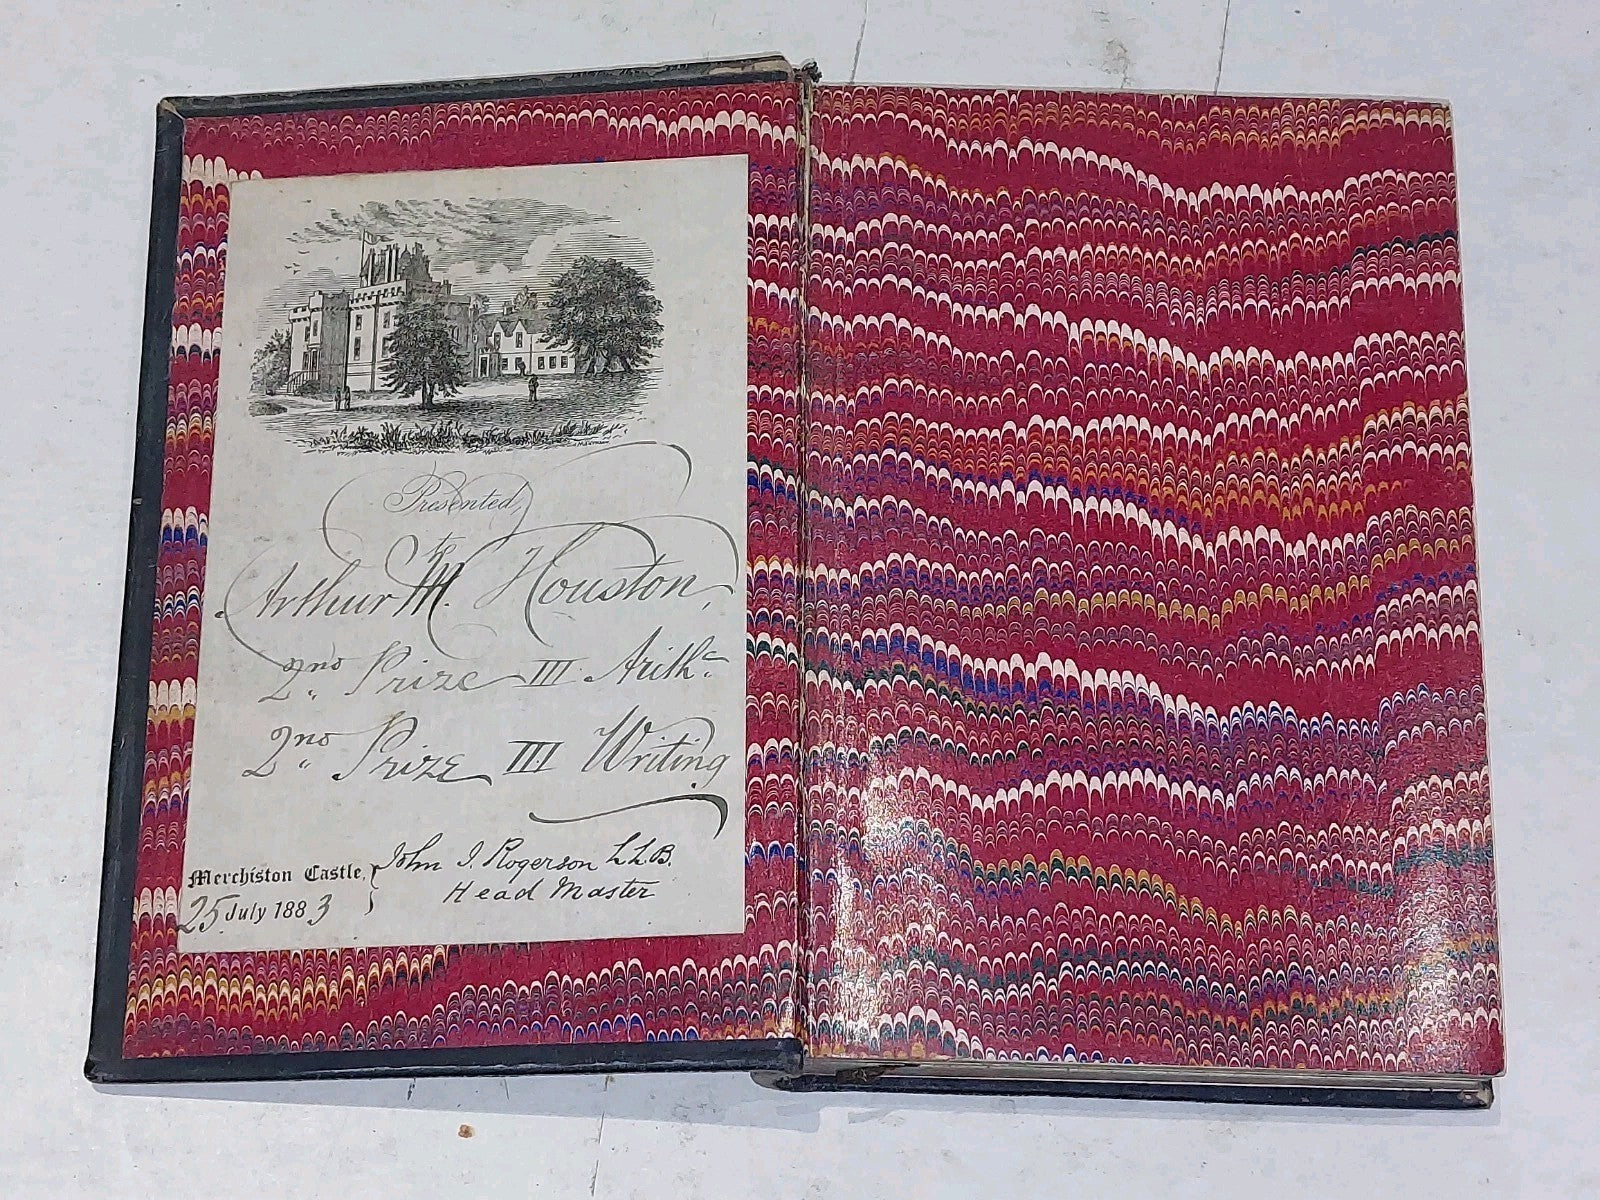 Presented,
to
Arthur M. Houston,
2nd Prize III Arithc
2nd Prize III Writing
Merchiston Castle, John J. Rogerson LLB.
25 July 1883 Head Master